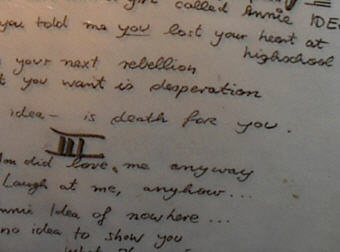 girl called Annie IDE
you told me you lost your heart at
highschool
your next rebellion
t you want is desperation
idea - is death for you.
III
You did love me anyway
Laugh at me, anyhow...
Annie Idea of nowhere...
no idea to show you